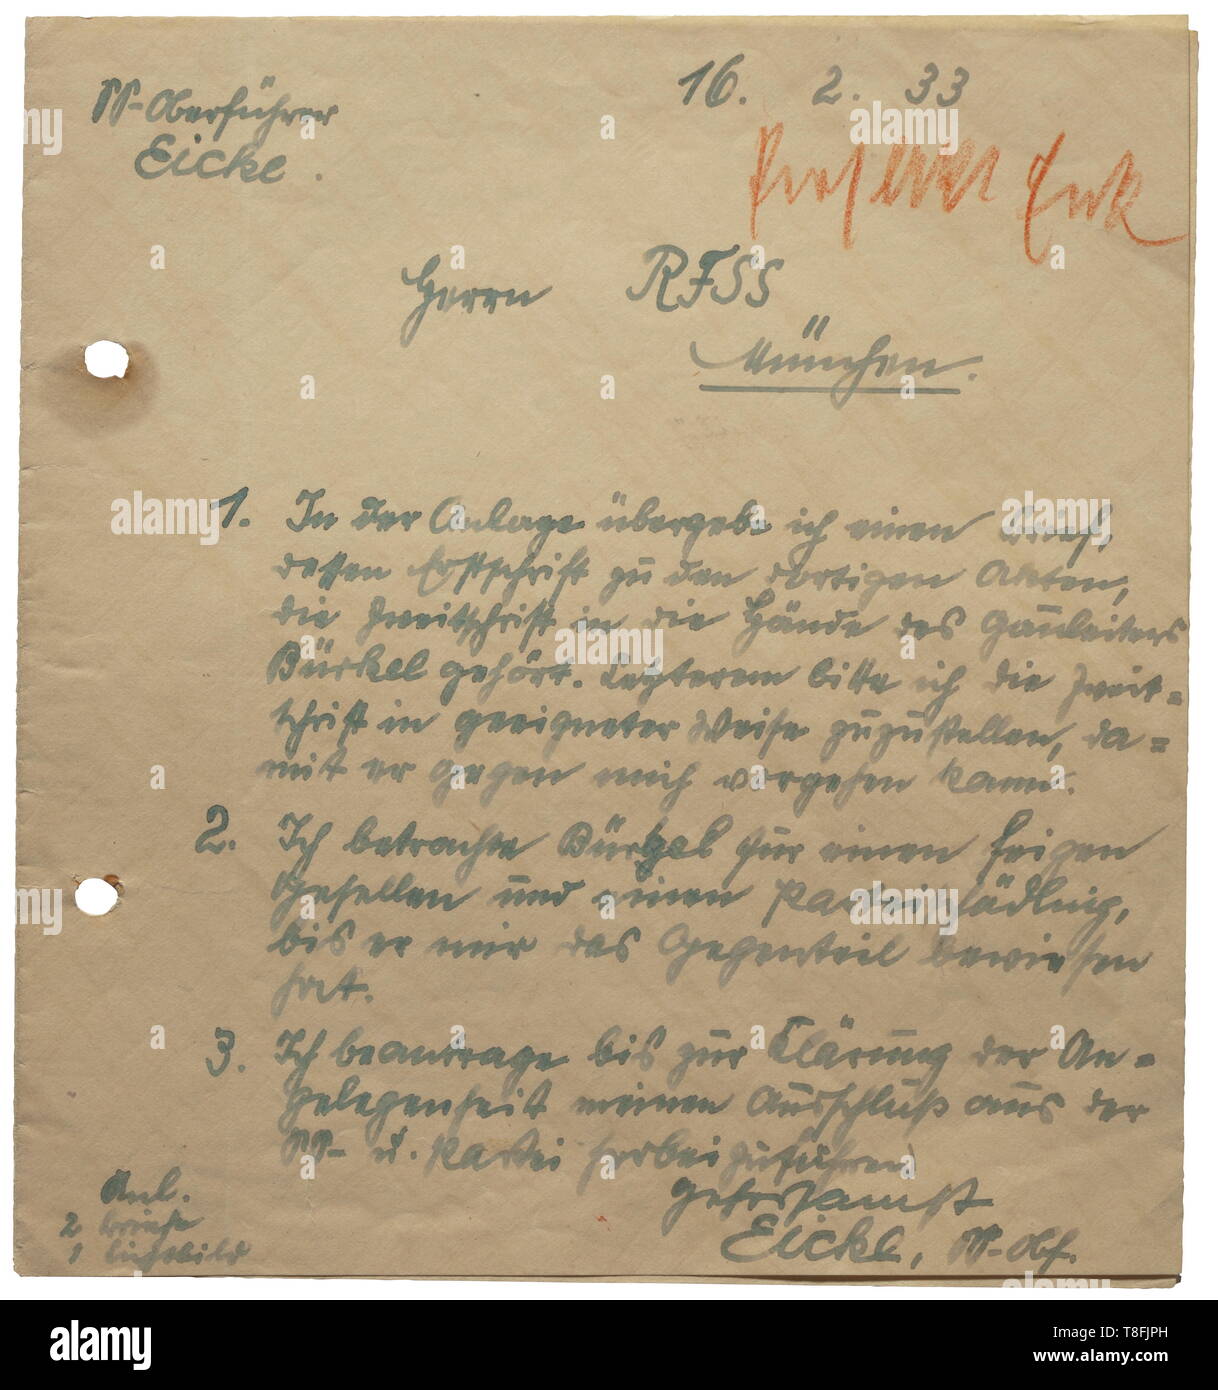 SS-Oberführer
Eicke.
16. 2. 33
Herrn RFSS
München.
1. In der Anlage übergebe ich einen Brief,
dessen Erstschrift zu den dortigen Akten,
die Zweitschrift in die Hände des Gauleiters
Bürkel gehört. Letzterem bitte ich die Zweit=
schrift in geeigneter Weise zuzustellen, da=
mit er gegen mich vorgehen kann.
2. Ich betrachte Bürkel für einen feigen
Gesellen und einen Parteischädling,
bis er mir das Gegenteil bewiesen
hat.
3. Ich beantrage bis zur Klärung der An=
gelegenheit meinen Ausschluß aus der
SS- u. Partei herbeizuführen
gehorsamst
Eicke, SS-Obf.
Anl.
2 Briefe
1 Lichtbild
alamy
Image ID: T8FJPH
www.alamy.com